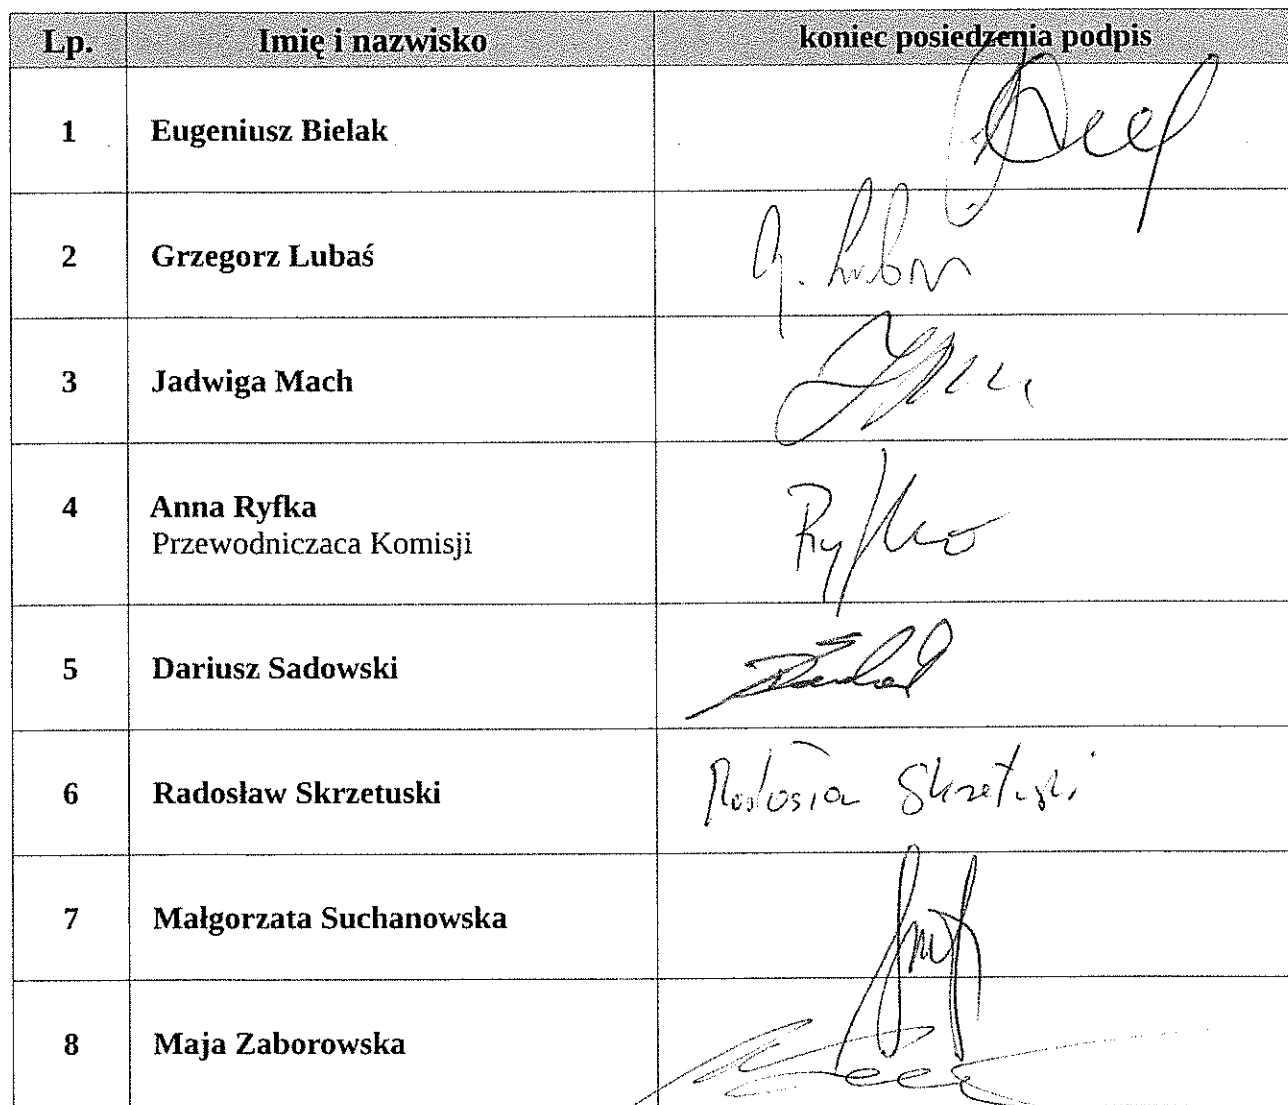 Lp. Imię i nazwisko koniec posiedzenia podpis
1 Eugeniusz Bielak
2 Grzegorz Lubaś
3 Jadwiga Mach
4 Anna Ryfka Ryfka
Przewodniczaca Komisji
5 Dariusz Sadowski
6 Radosław Skrzetuski Skrzetuski
7 Małgorzata Suchanowska
8 Maja Zaborowska